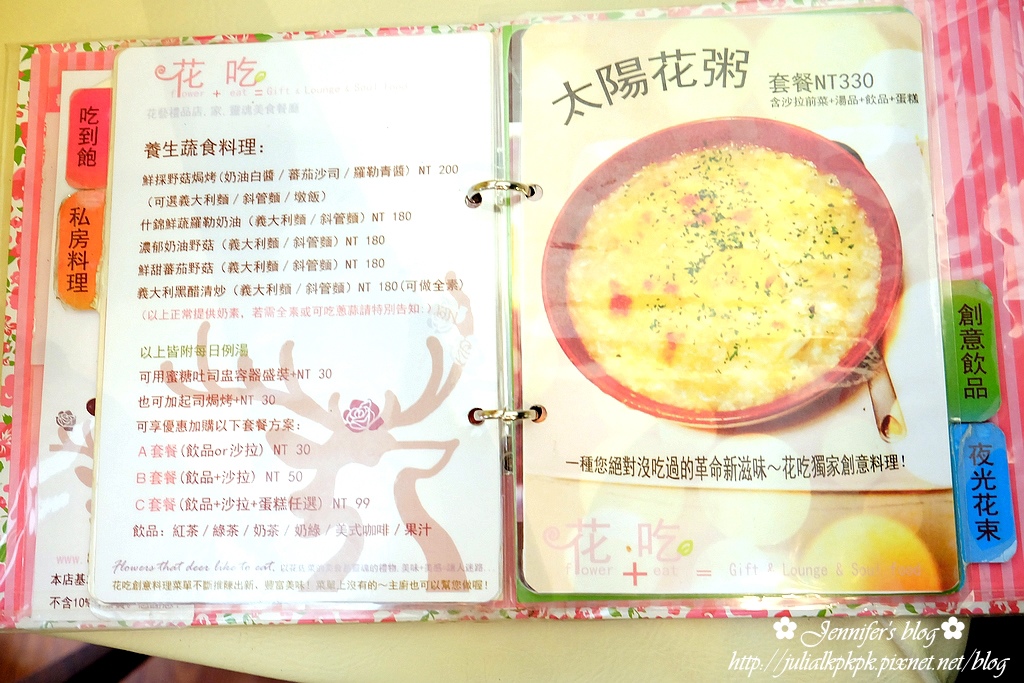 吃到飽
私房料理
花吃
flower + eat = Gift & Lounge & Soul Food
花藝禮品店．家．靈魂美食餐廳
養生蔬食料理：
鮮採野菇焗烤(奶油白醬／蕃茄沙司／羅勒青醬) NT 200
（可選義大利麵／斜管麵／燉飯）
什錦鮮蔬羅勒奶油（義大利麵／斜管麵）NT 180
濃郁奶油野菇（義大利麵／斜管麵）NT 180
鮮甜蕃茄野菇（義大利麵／斜管麵）NT 180
義大利黑醋清炒（義大利麵／斜管麵）NT 180(可做全素)
(以上正常提供奶素，若需全素或可吃蔥蒜請特別告知：)
以上皆附每日例湯
可用蜜糖吐司盅容器盛裝+NT 30
也可加起司焗烤+NT 30
可享優惠加購以下套餐方案：
A套餐(飲品or沙拉) NT 30
B套餐(飲品+沙拉) NT 50
C套餐(飲品+沙拉+蛋糕任選) NT 99
飲品：紅茶／綠茶／奶茶／奶綠／美式咖啡／果汁
Flowers that deer like to eat.
花吃創意料理菜單不斷推陳出新，豐富美味！菜單上沒有的～主廚也可以幫您做喔！
www.
本店基
不含10%
太陽花粥
套餐NT330
含沙拉前菜+湯品+飲品+蛋糕
一種您絕對沒吃過的革命新滋味～花吃獨家創意料理！
花吃
flower + eat = Gift & Lounge & Soul Food
創意飲品
夜光花束
Jennifer's blog
http://julialkpkpk.pixnet.net/blog